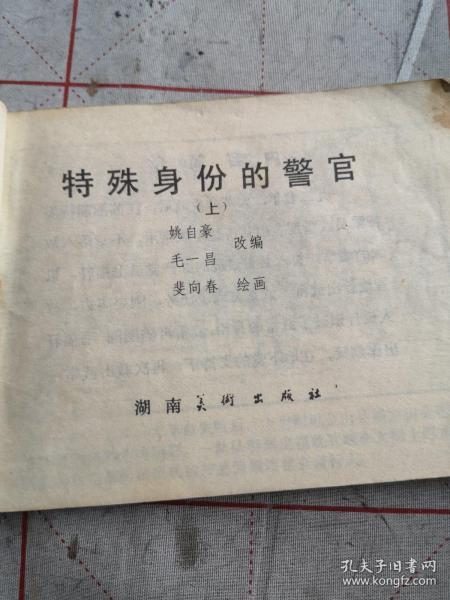 特殊身份的警官
（上）
姚自豪
毛一昌
改编
斐向春 绘画
湖南美術出版社
孔夫子旧书网
www.kongfz.com